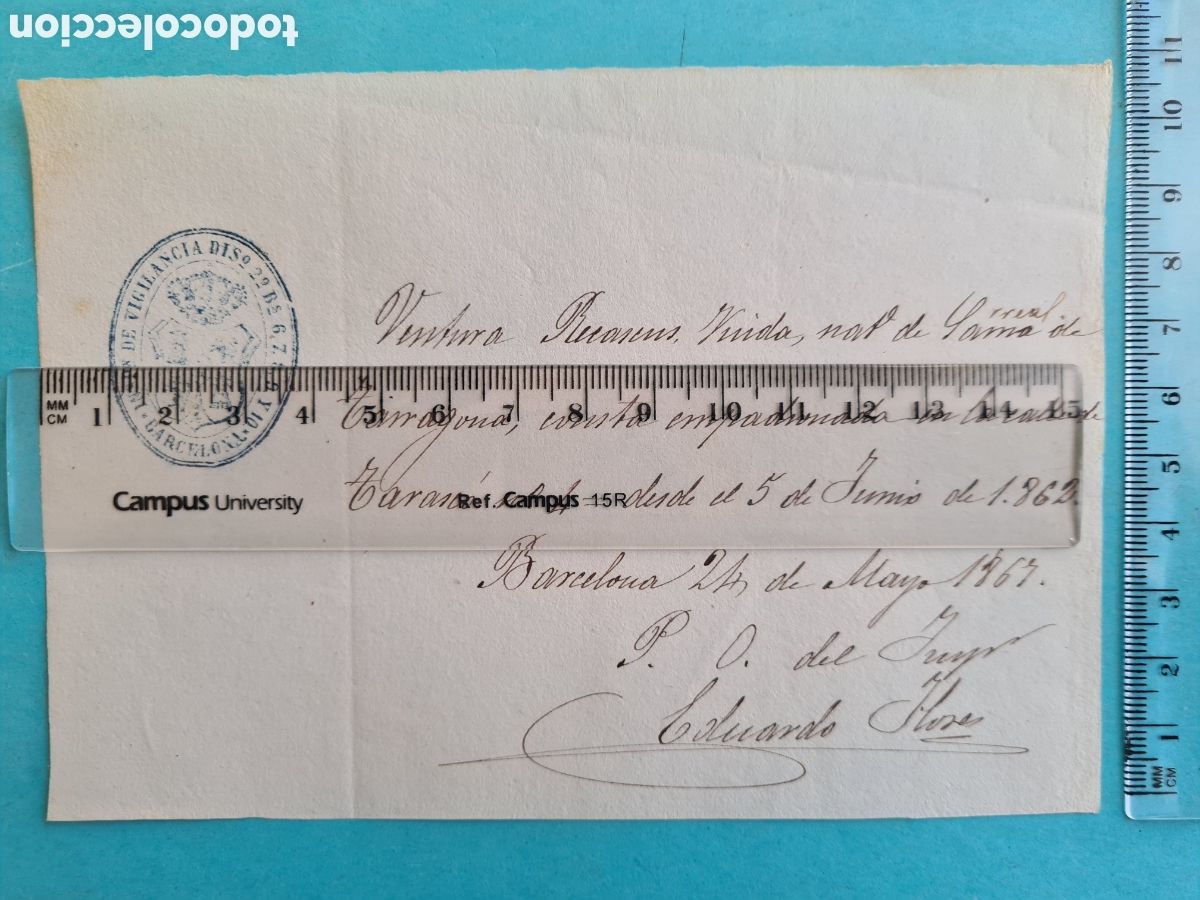 todocoleccion
DE VIGILANCIA DISº 2º BS 6.7.8.9 Y 10
BARCELONA
Ventura Recasens, Viuda, natl de Sarrareal de
Tarragona, consta empadronada en la calle de
desde el 5 de Junio de 1.862.
Barcelona 24 de Mayo 1867.
P. O. del Inspr
Eduardo Flores
MM
CM
1 2 3 4 5 6 7 8 9 10 11 12 13 14 15
Campus University
Ref. Campus 15R
MM
CM
1 2 3 4 5 6 7 8 9 10 11